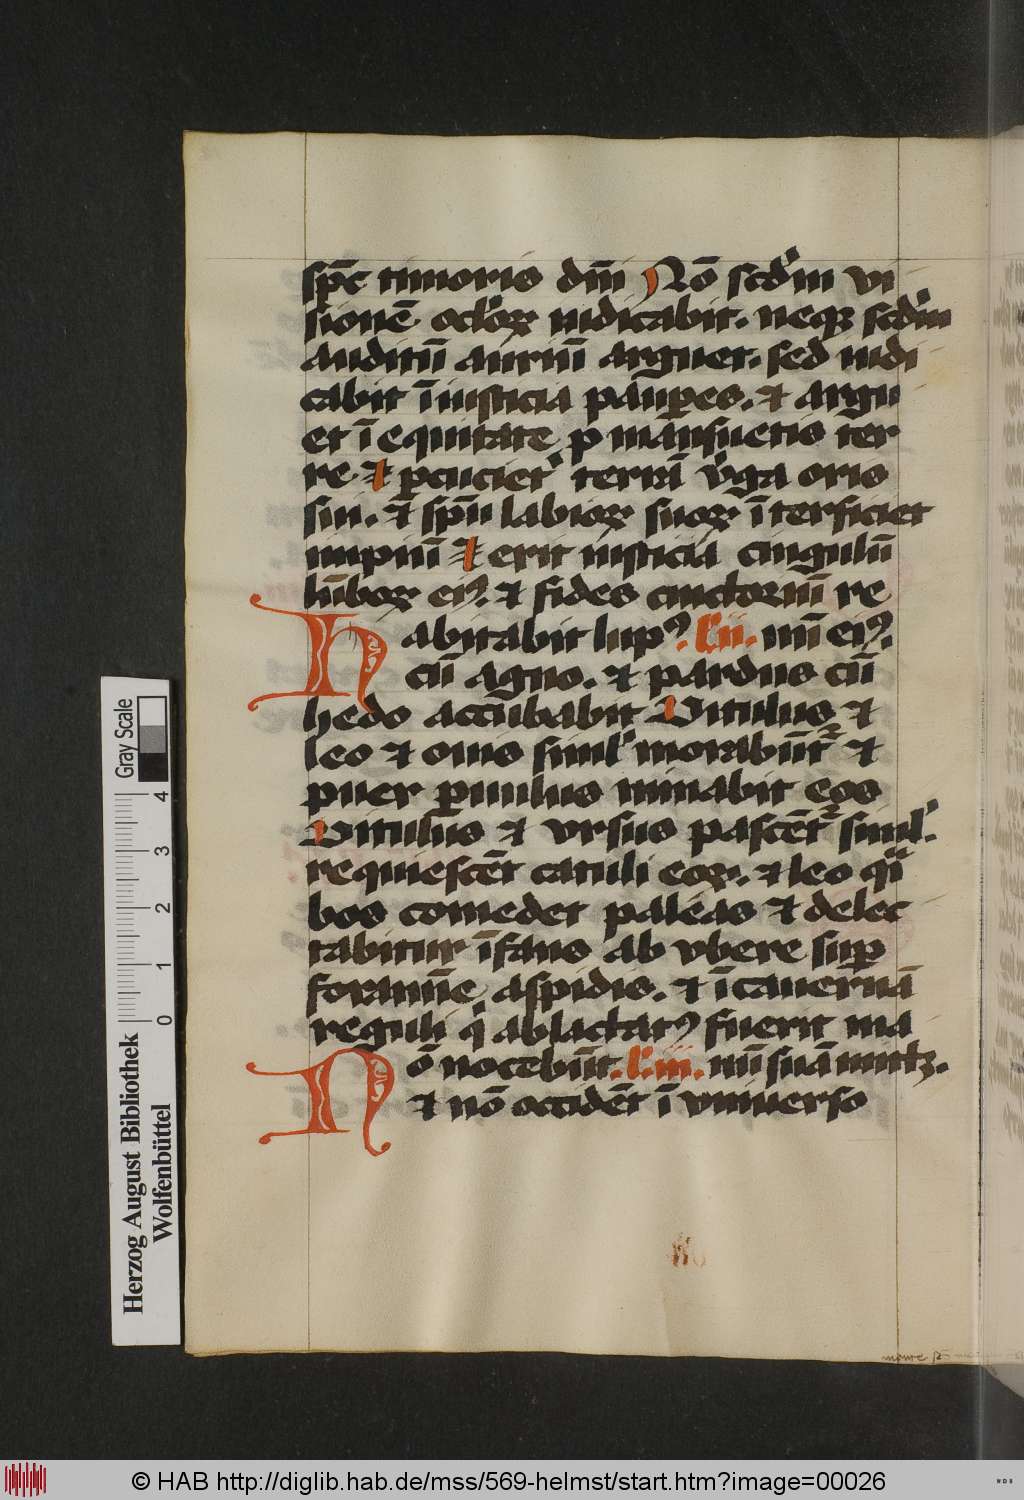 spc̄ timoris dn̄i Nō scd'm vi
sionē oclo'ꝝ iudicabit. neqꝫ scd'm
auditū auriū arguet. sed iudi
cabit ī iusticia pauꝑes. et argu
et ī equitate ꝓ mansuetis ter
re et ꝑcuciet' terrā v'ga oris
sui. et sp̄u labioꝝ suoꝝ īterficiet
impiū et erit iusticia cingulū
lūboꝝ eiꝰ. et fides cinctoriū re
Habitabit lupꝰ. L'ii. nū eiꝰ.
cū agno. et pardus cū
hedo accubabit Vitulus et
leo et ouis simul' morabūt' et
puer ꝑuulus minabit eos
Vitulus et vrsus pascēt' simul'.
requiescēt catuli eoꝝ. et leo qi
bos comedet paleas et delec
tabitur īfans ab vbere suꝑ
foramīe aspidis. et ī cauernā
reguli qi ablactatꝰ fuerit ma
Nō nocebūt. L'iii. nū suā mittꝫ.
et nō occidēt ī vniuerso
Gray Scale
4
3
2
1
0
Herzog August Bibliothek
Wolfenbüttel
© HAB http://diglib.hab.de/mss/569-helmst/start.htm?image=00026